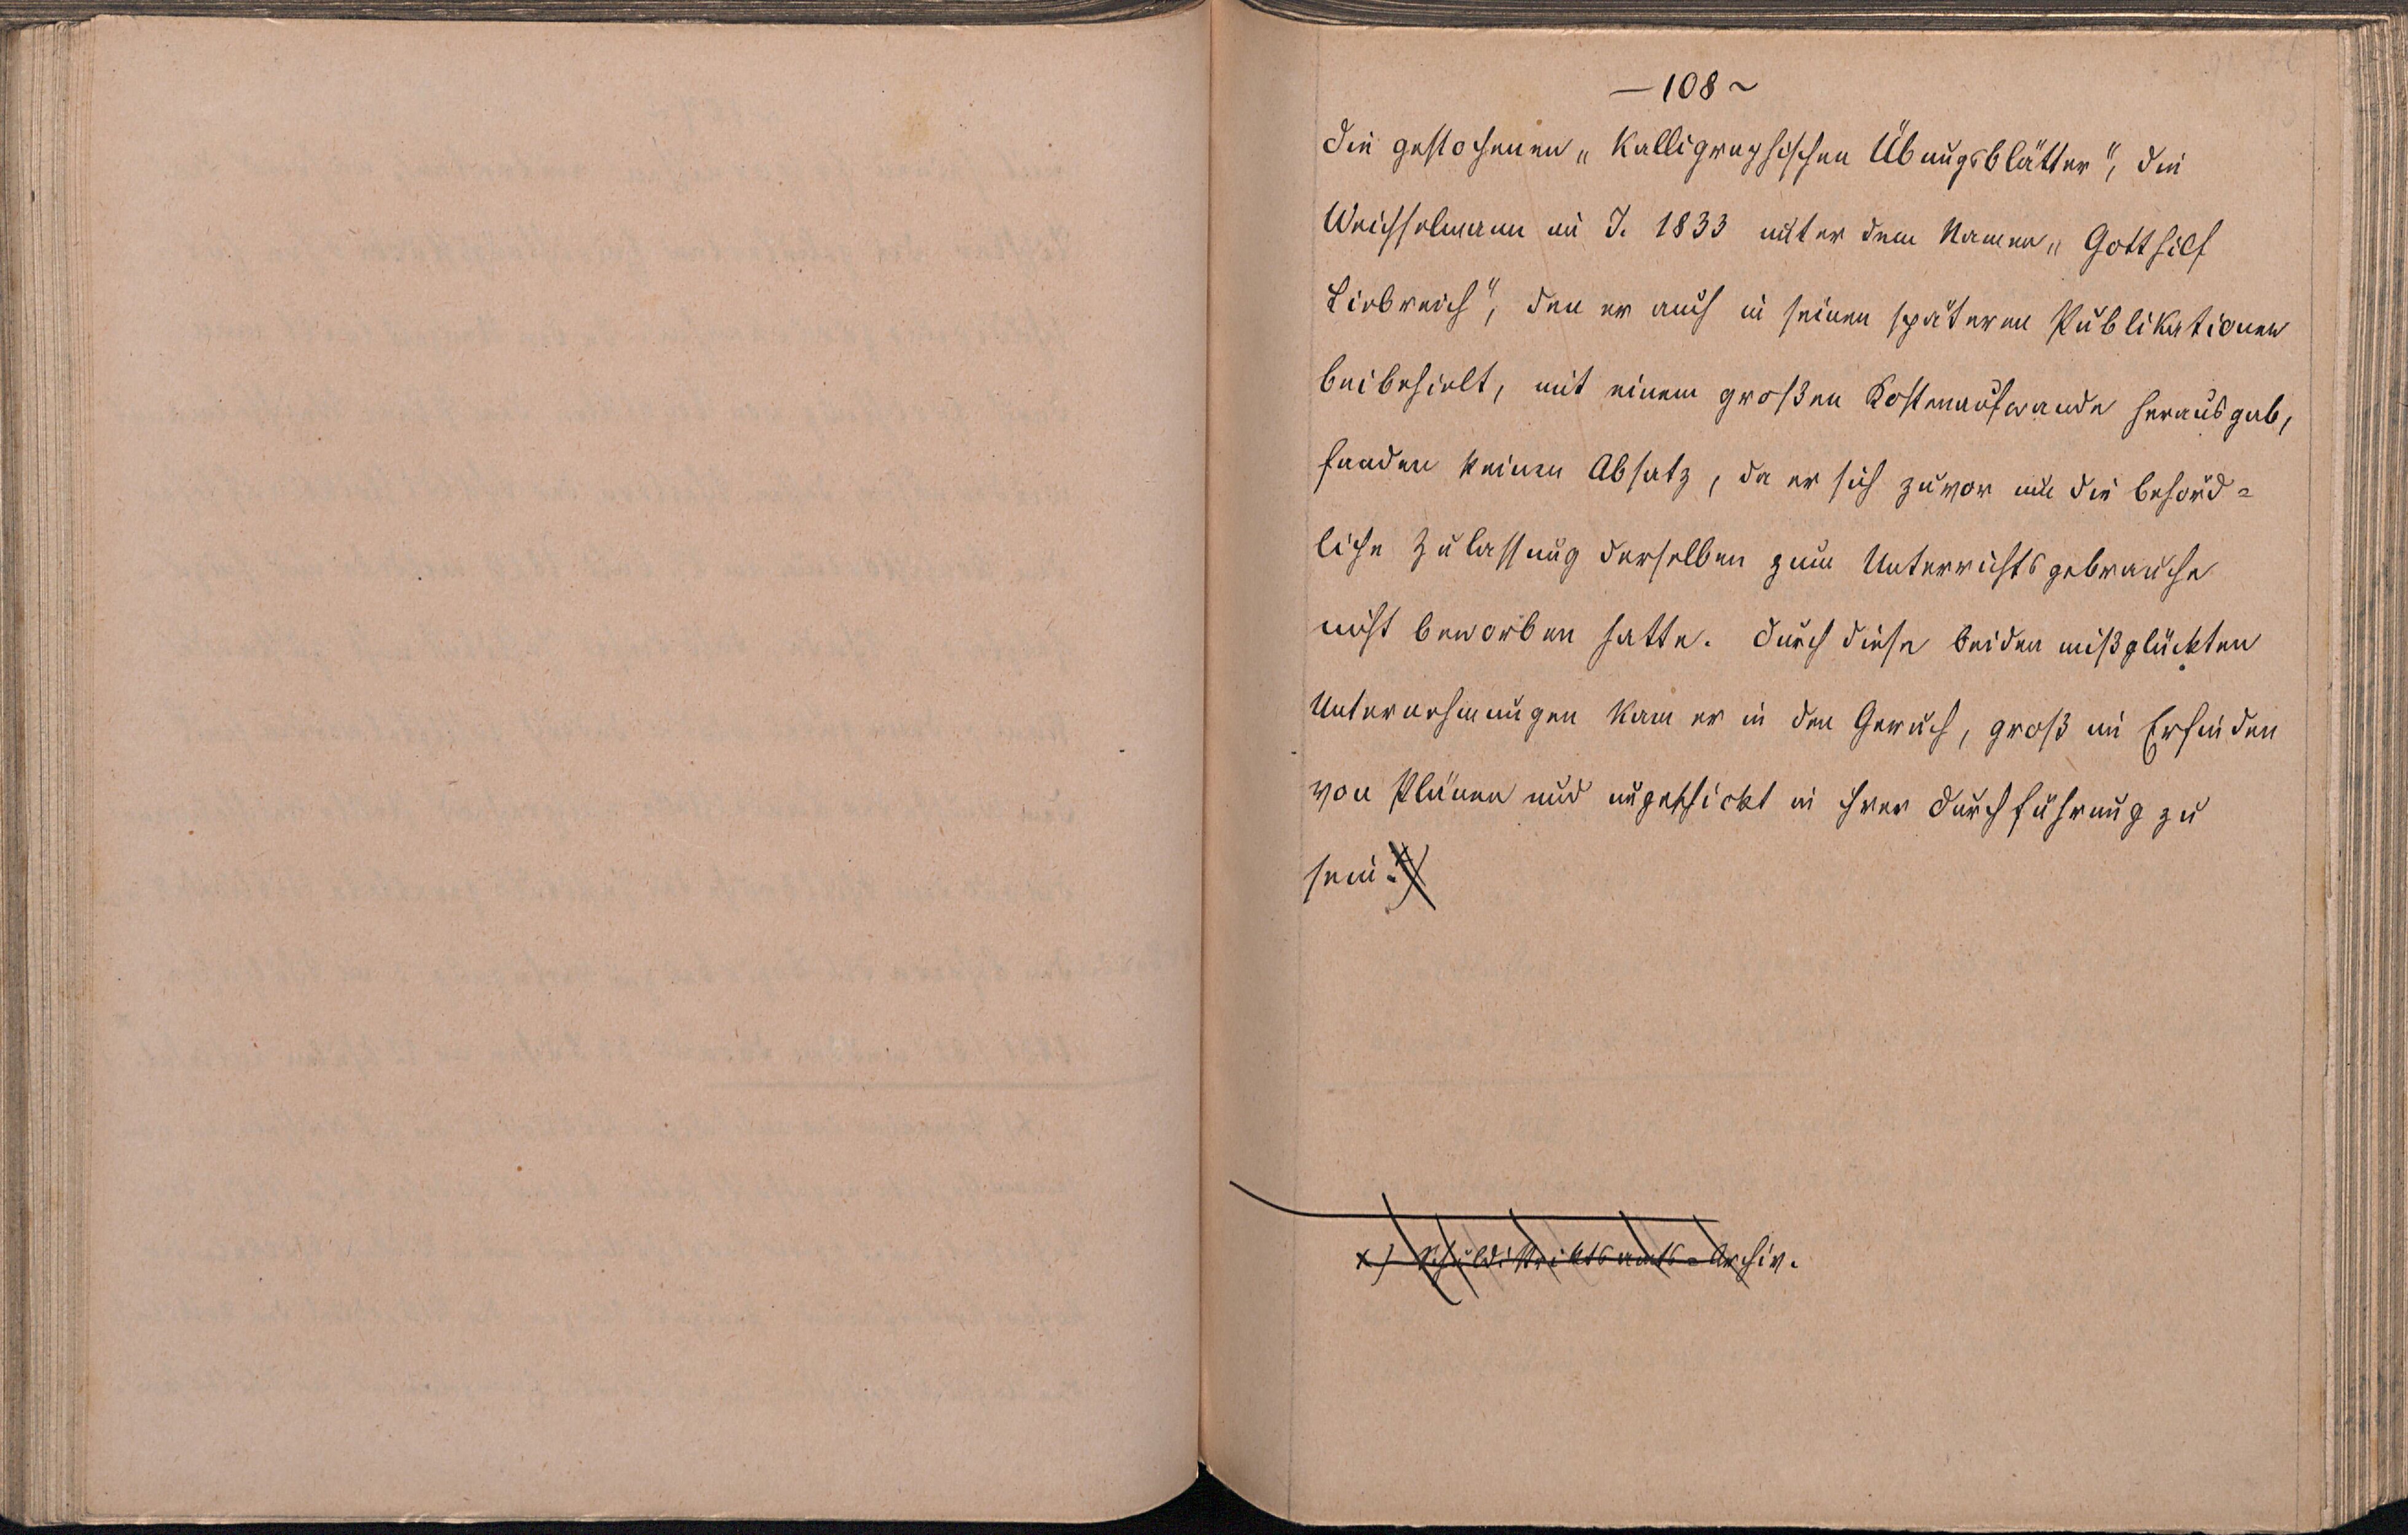 —108~
Die gestochenen „Kalligraphischen Übungsblätter", die
Weichselmann im J. 1833 unter dem Namen „Gotthilf
Liebreich", den er auch in seinen späteren Publikationen
beibehielt, mit einem großen Kostenaufwande herausgab,
fanden keinen Absatz, da er sich zuvor um die behörd=
liche Zulassung derselben zum Unterrichtsgebrauche
nicht beworben hatte. Durch diese beiden mißglückten
Unternehmungen kam er in den Geruch, groß im Erfinden
von Plänen und ungeschickt in ihrer Durchführung zu
sein.x)
x) Schuldistriktsamts=Archiv.